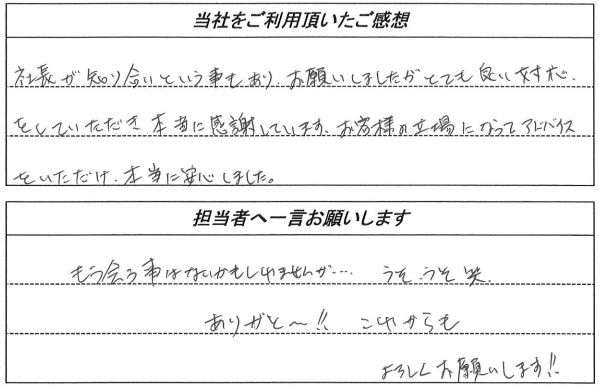 当社をご利用頂いたご感想
社長が知り合いという事もあり、お願いしましたがとても良い対応
をしていただき本当に感謝しています。お客様の立場になってアドバイス
をいただけ、本当に安心しました。
担当者へ一言お願いします
もう会う事はないかもしれませんが… うそうそ笑
ありがと〜!! これからも
よろしくお願いします!!